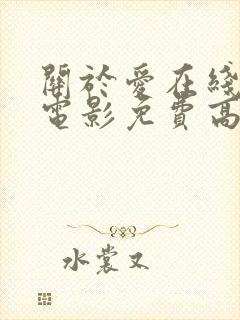 關於愛在綫
電影免費高
水裳又